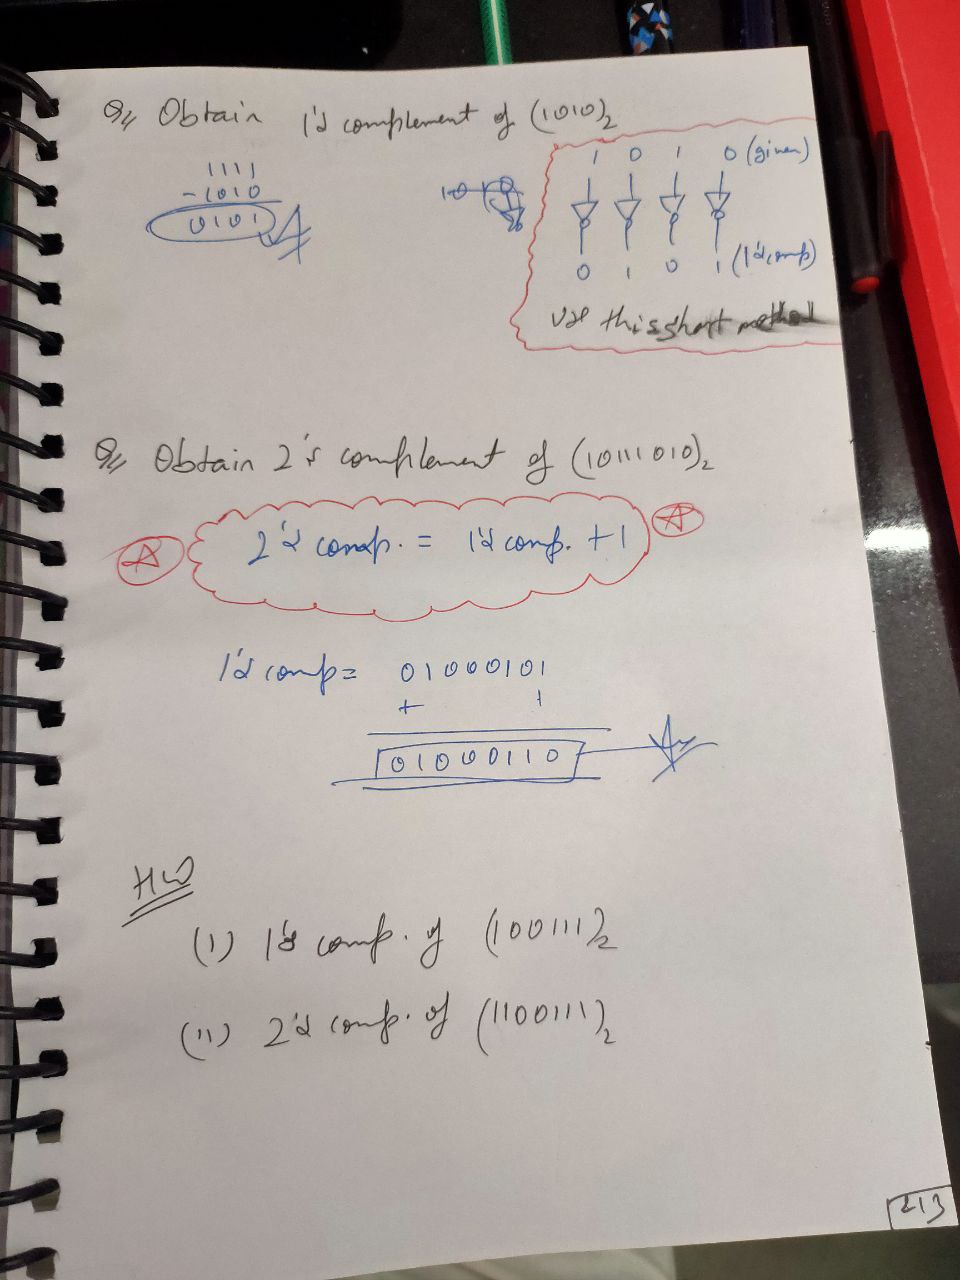 Q// Obtain 1's complement of (1010)₂
1111
-1010
0101
1 0 1 0 (given)
0 1 0 1 (1's comp)
use this short method
Q// Obtain 2's complement of (10111010)₂
2's comp. = 1's comp. + 1
1's comp = 01000101
+ 1
01000110
HW
(i) 1's comp. of (100111)₂
(ii) 2's comp. of (1100111)₂
213